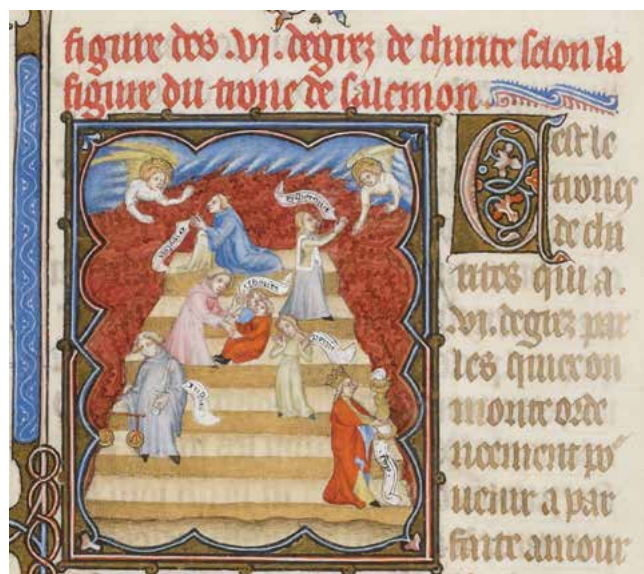 figure des .vj. degrez de charite selon la
figure du trone de salemon.
Cest le
trones
de cha
rites qui a.
.vj. degrez par
les quiex on
monte orde
neement po
uenir a par
faite amour